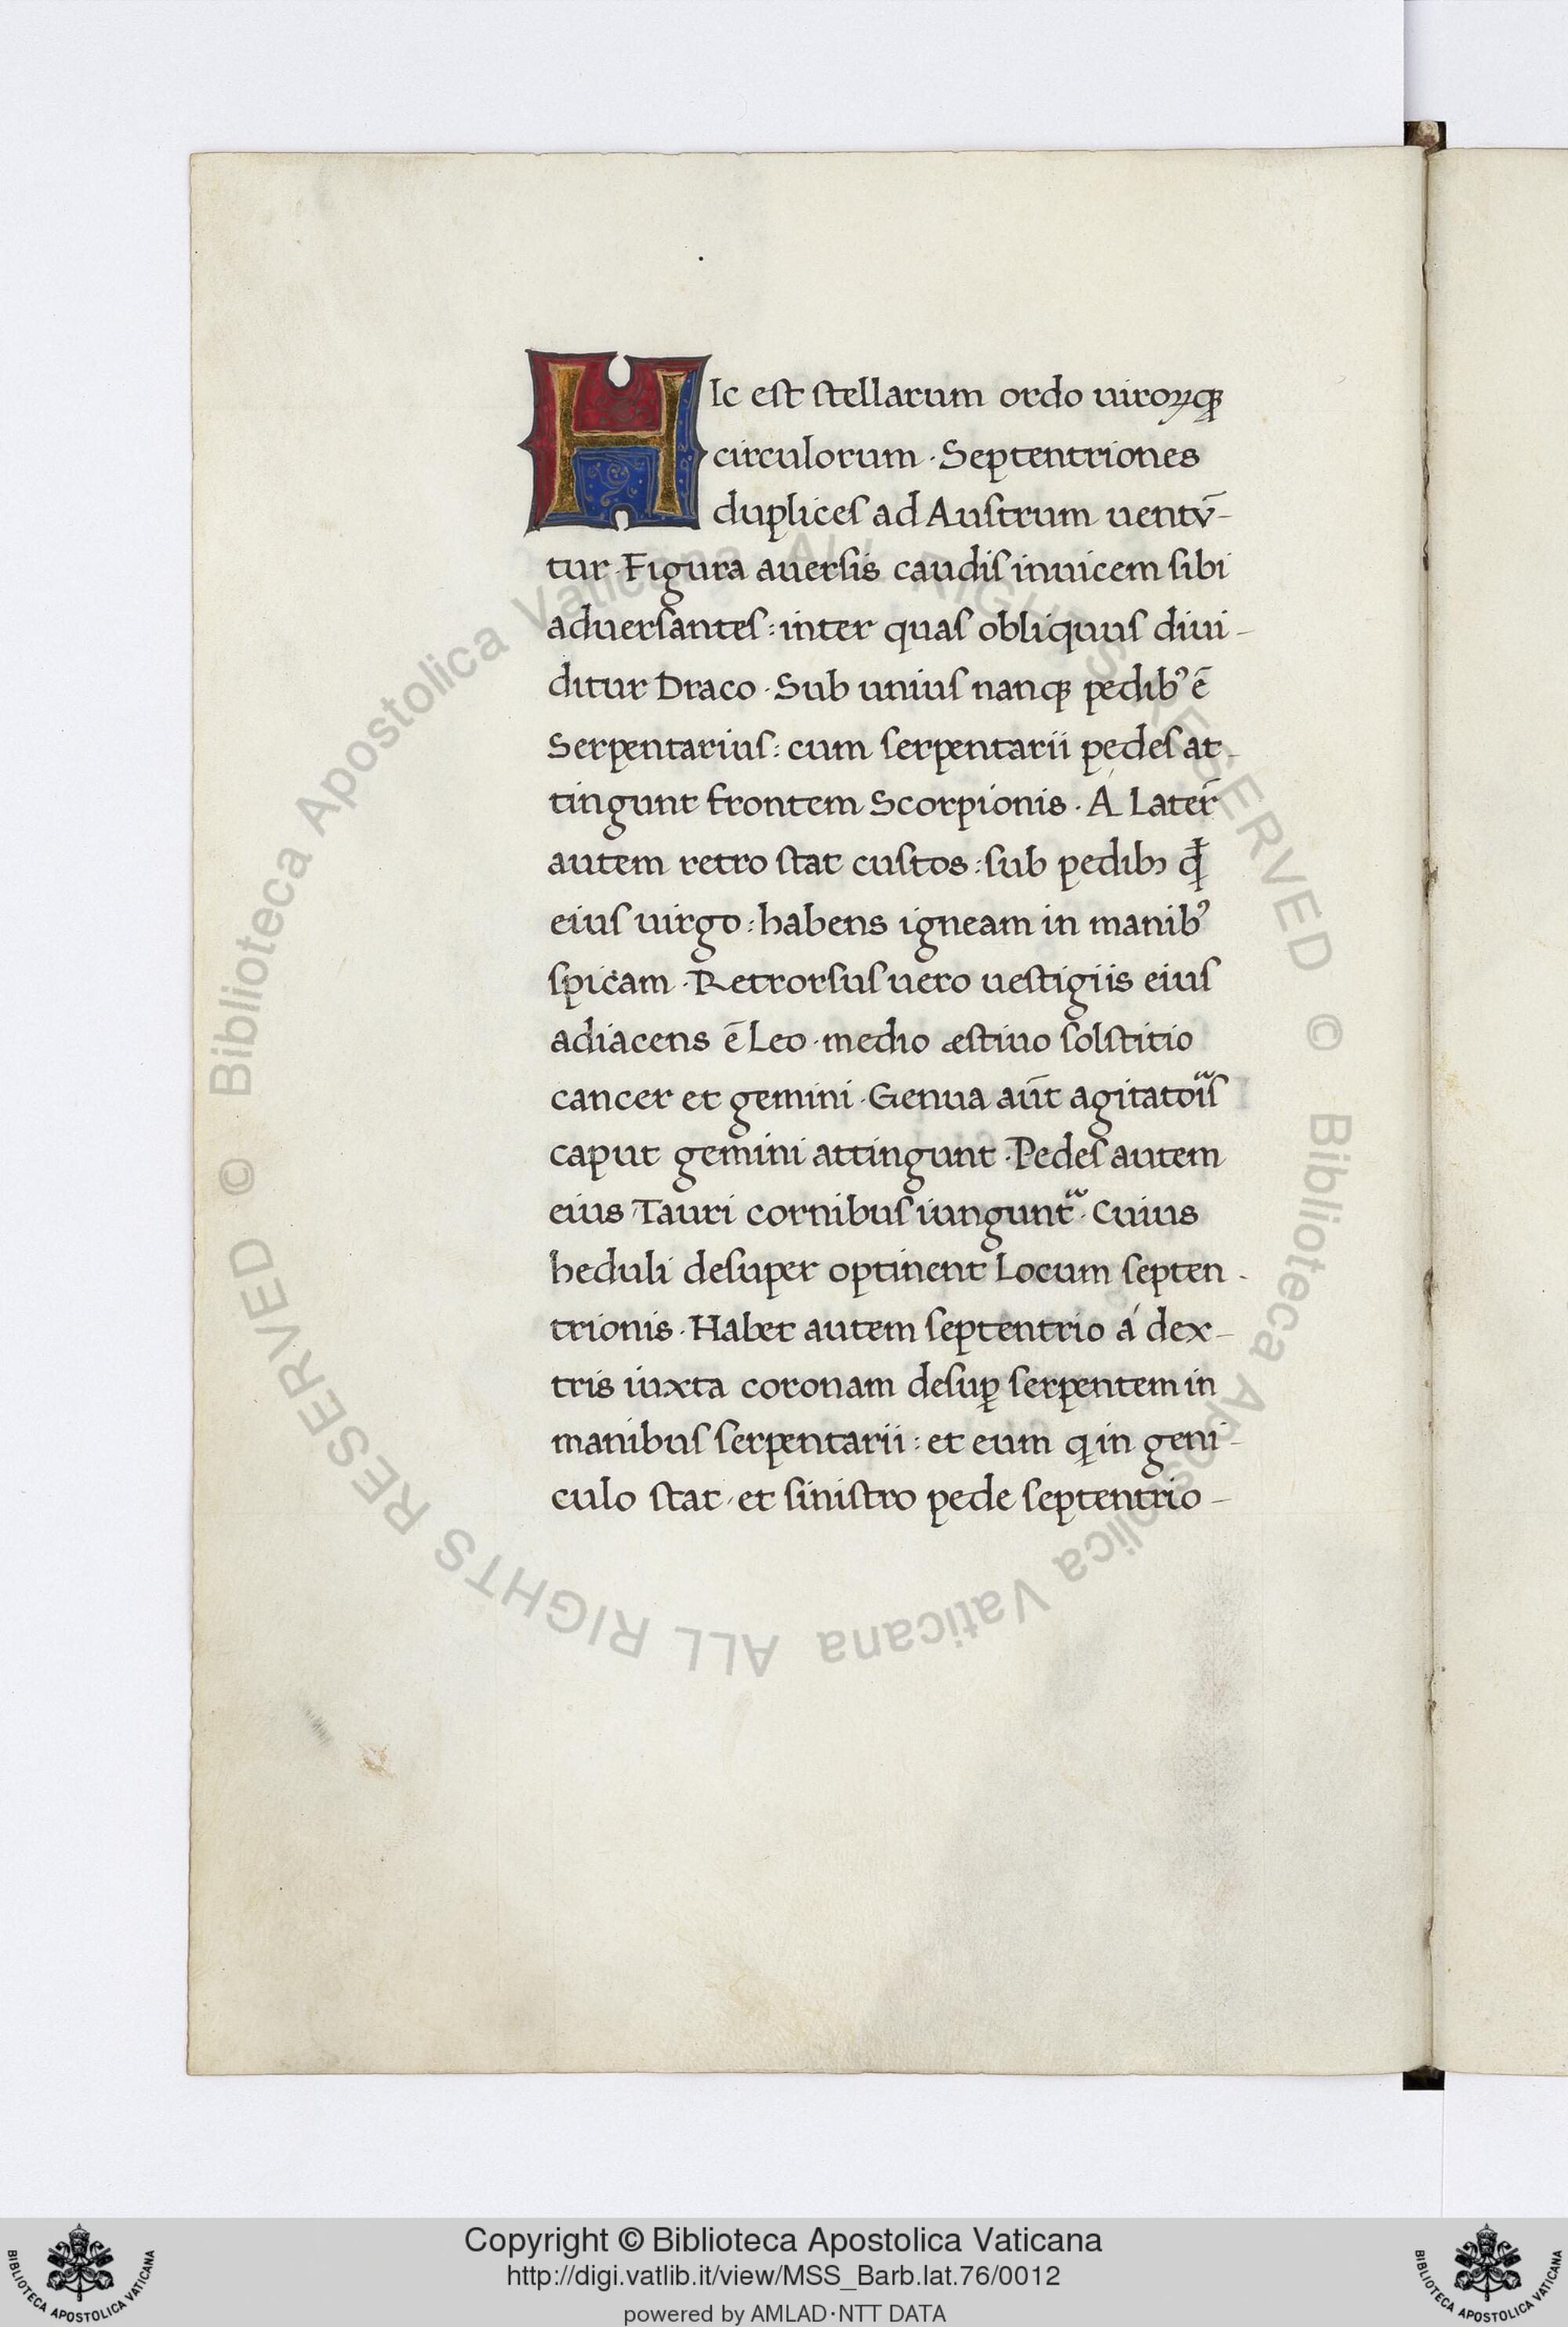 HIc est stellarum ordo uiroꝝqꝫ
circulorum · Septentriones
duplices ad Austrum uentv̄-
tur · Figura auersis caudis inuicem sibi
aduersantes : inter quas obliquus diui-
ditur Draco · Sub unius nanqꝫ pedibꝰ ē
Serpentarius : cum serpentarii pedes at-
tingunt frontem Scorpionis · Á Later̄
autem retro stat custos : sub pedibꝫ
eius uirgo : habens igneam in manibꝰ
spicam · Retrorsus uero uestigiis eius
adiacens ē Leo · medio æstiuo solstitio
cancer et gemini · Genua aūt agitatoıis
caput gemini attingunt · Pedes autem
eius Tauri cornibus iunguntᷓ · Cuius
heduli desuper optinent Locum septen-
trionis · Habet autem septentrio á dex-
tris iuxta coronam desuꝑ serpentem in
manibus serpentarii : et eum ꝗ in geni-
culo stat, et sinistro pede septentrio-
© Biblioteca Apostolica Vaticana ALL RIGHTS RESERVED © Biblioteca Apostolica Vaticana ALL RIGHTS RESERVED
BIBLIOTECA APOSTOLICA VATICANA
Copyright © Biblioteca Apostolica Vaticana
http://digi.vatlib.it/view/MSS_Barb.lat.76/0012
powered by AMLAD·NTT DATA
BIBLIOTECA APOSTOLICA VATICANA